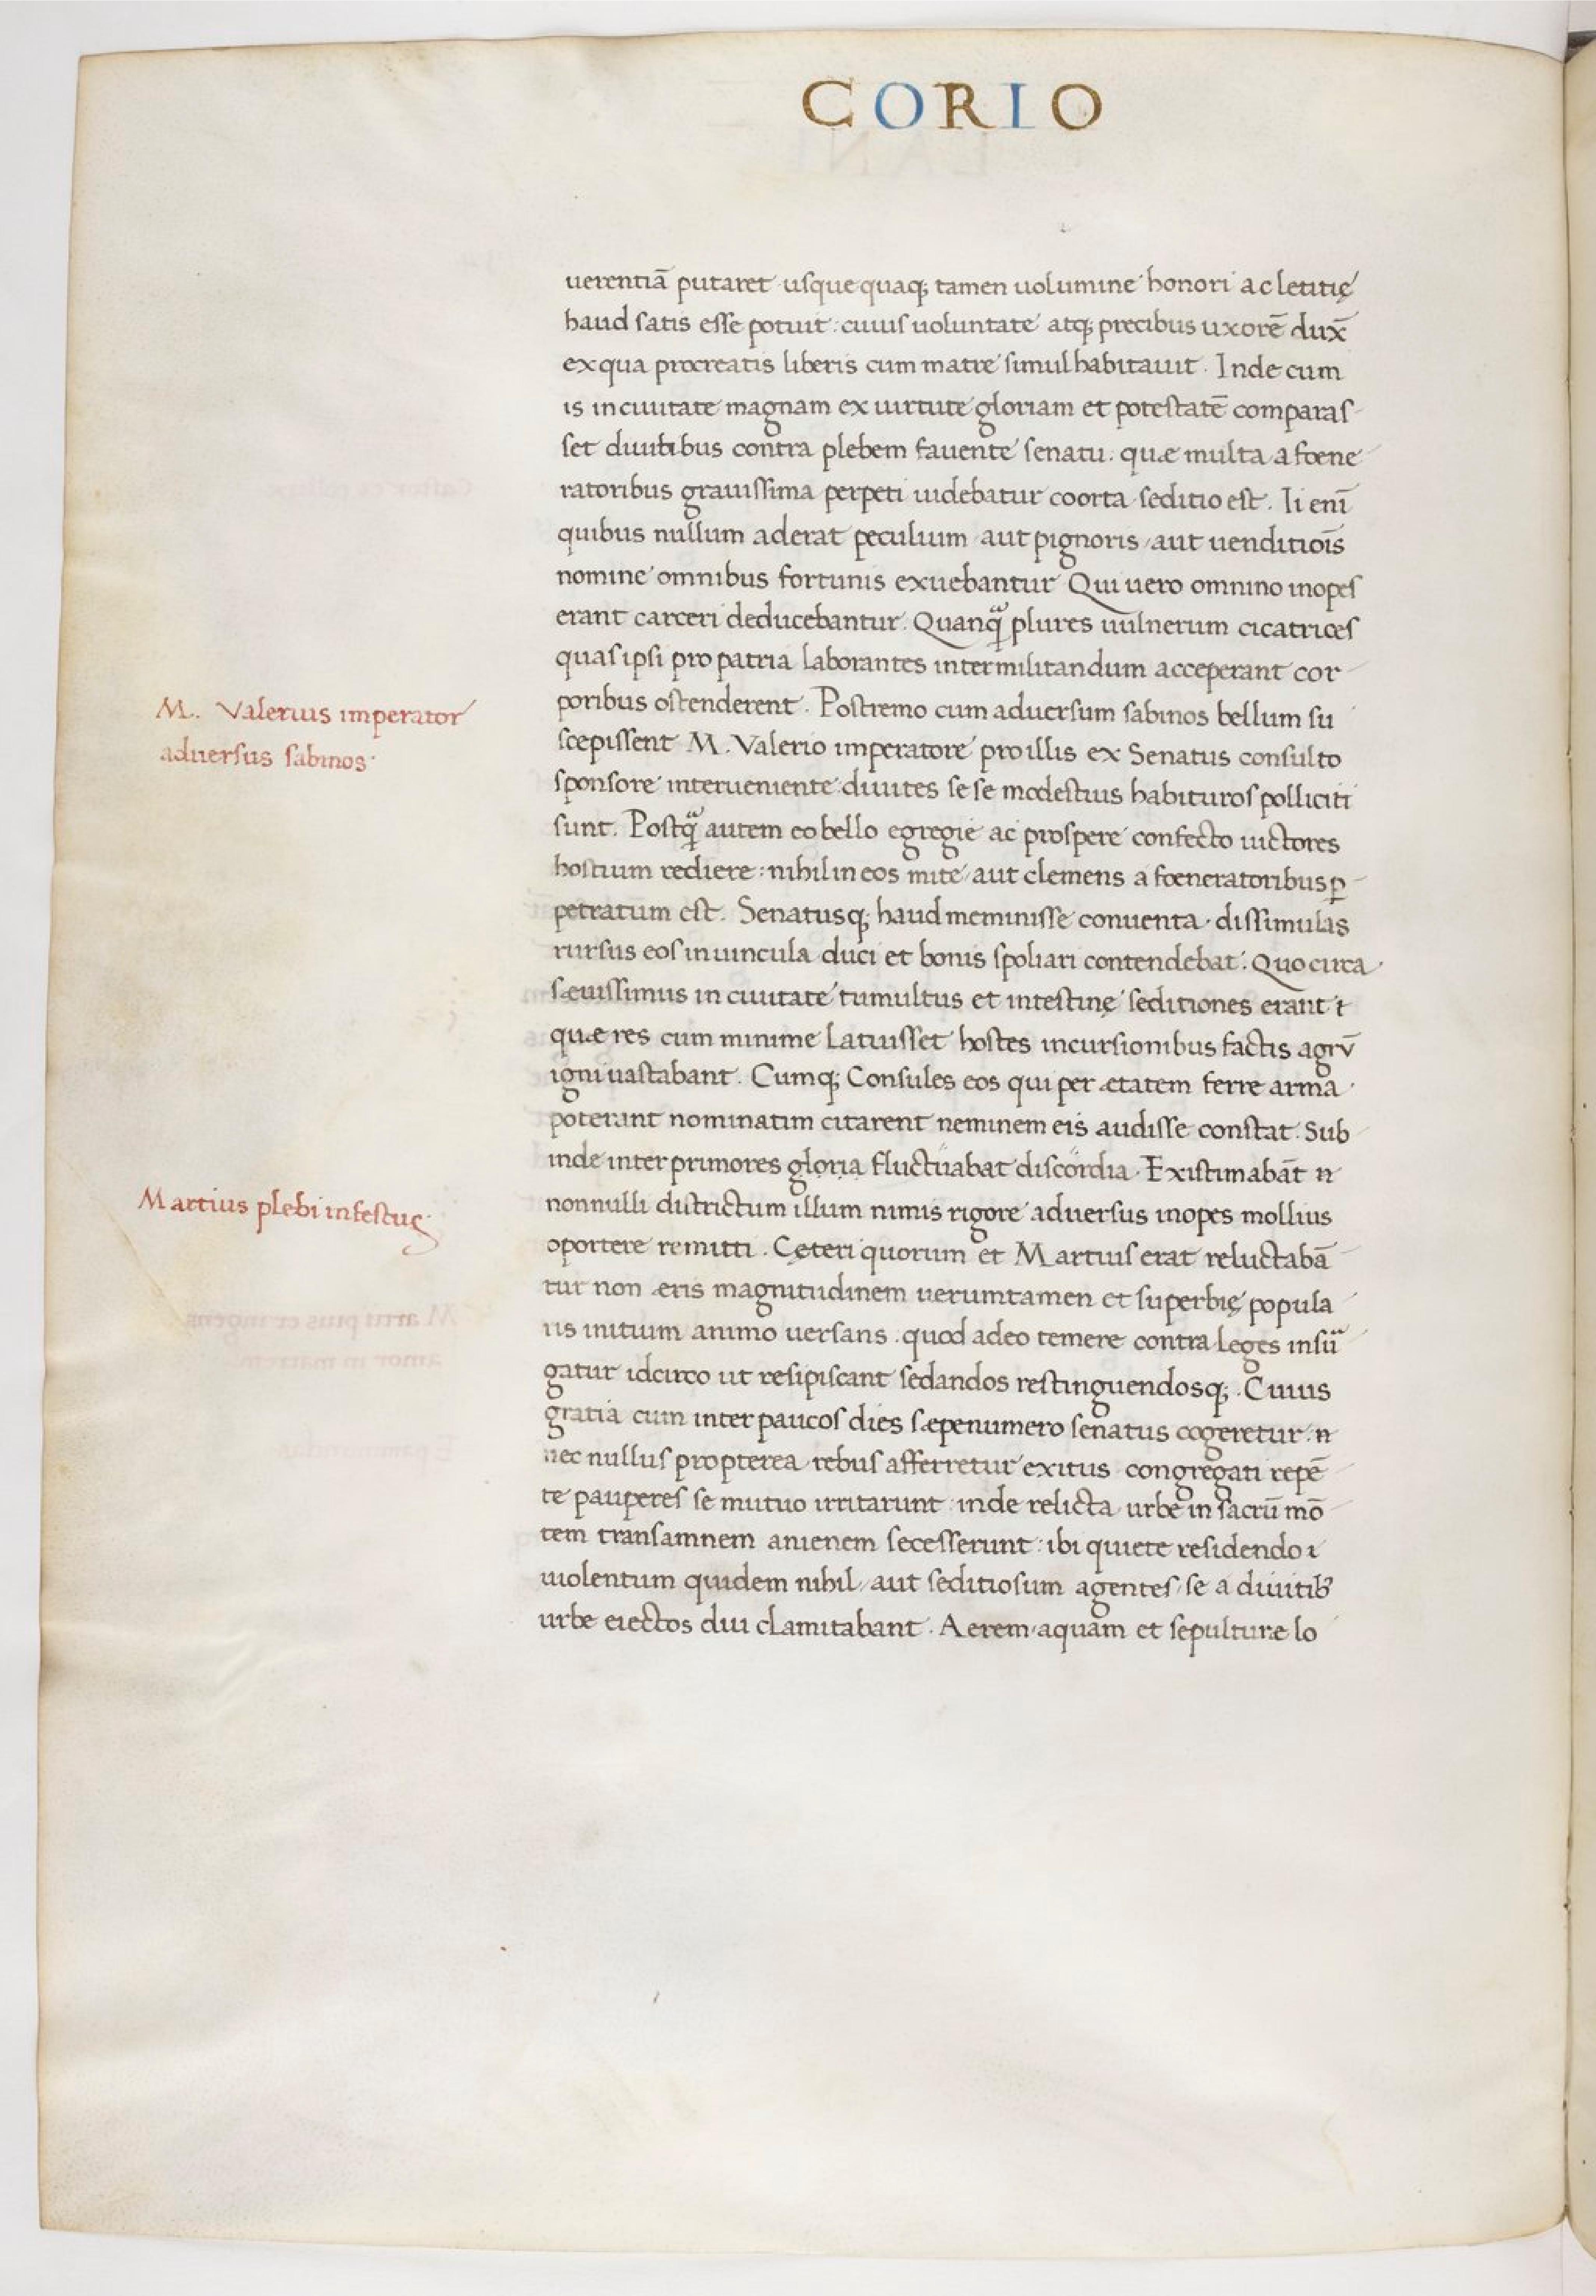 CORIO
uerentiā putaret usque quaq; tamen uolumine honori ac letitię
haud satis esse potuit: cuius uoluntate atq; precibus uxorē dux̄
ex qua procreatis liberis cum matre simul habitauit. Inde cum
is in ciuitate magnam ex uirtute gloriam et potestatē comparas-
set diuitibus contra plebem fauente senatu. quæ multa a foene
ratoribus grauissima perpeti uidebatur coorta seditio est. Ii enī
quibus nullum aderat peculium aut pignoris, aut uenditiōis
nomine omnibus fortunis exuebantur Qui uero omnino inopes
erant carceri deducebantur. Quanqᷓ plures uulnerum cicatrices
quas ipsi pro patria laborantes inter militandum acceperant cor-
poribus ostenderent. Postremo cum aduersum sabinos bellum su
M. Valerius imperator
scepissent M. Valerio imperatore pro illis ex Senatus consulto
aduersus sabinos.
sponsore interueniente: diuites sese modestius habituros polliciti
sunt. Postqᷓ autem eo bello egregie ac prospere confecto uictores
hostium rediere: nihil in eos mite, aut clemens a foeneratoribus ꝑ-
petratum est. Senatusq; haud meminisse conuenta, dissimulas
rursus eos in uincula duci et bonis spoliari contendebat: Quo circa
sæuissimus in ciuitate tumultus et intestinę seditiones erant:
quæ res cum minime latuisset hostes incursionibus factis agrū
igni uastabant. Cumq; Consules eos qui per ætatem ferre arma
poterant nominatim citarent neminem eis audisse constat. Sub
inde inter primores gloria fluctuabat discordia. Existimabāt n
Martius plebi infestus
nonnulli districtum illum nimis rigore aduersus inopes mollius
oportere remitti. Cęteri quorum et Martius erat reluctabā
tur non æris magnitudinem uerumtamen et superbię popula
ris initium animo uersans. quod adeo temere contra leges insur
gatur idcirco ut resipiscant sedandos restinguendosq;. Cuius
gratia cum inter paucos dies sæpenumero senatus cogeretur. n
nec nullus propterea rebus afferretur exitus congregati repē
te pauperes se mutuo irritarunt: inde relicta urbe in sacrū mō
tem transamnem anienem secesserunt: ibi quiete residendo ⁊
uiolentum quidem nihil, aut seditiosum agentes, se a diuitibꝰ
urbe eiectos diu clamitabant. Aerem, aquam et sepulturæ lo